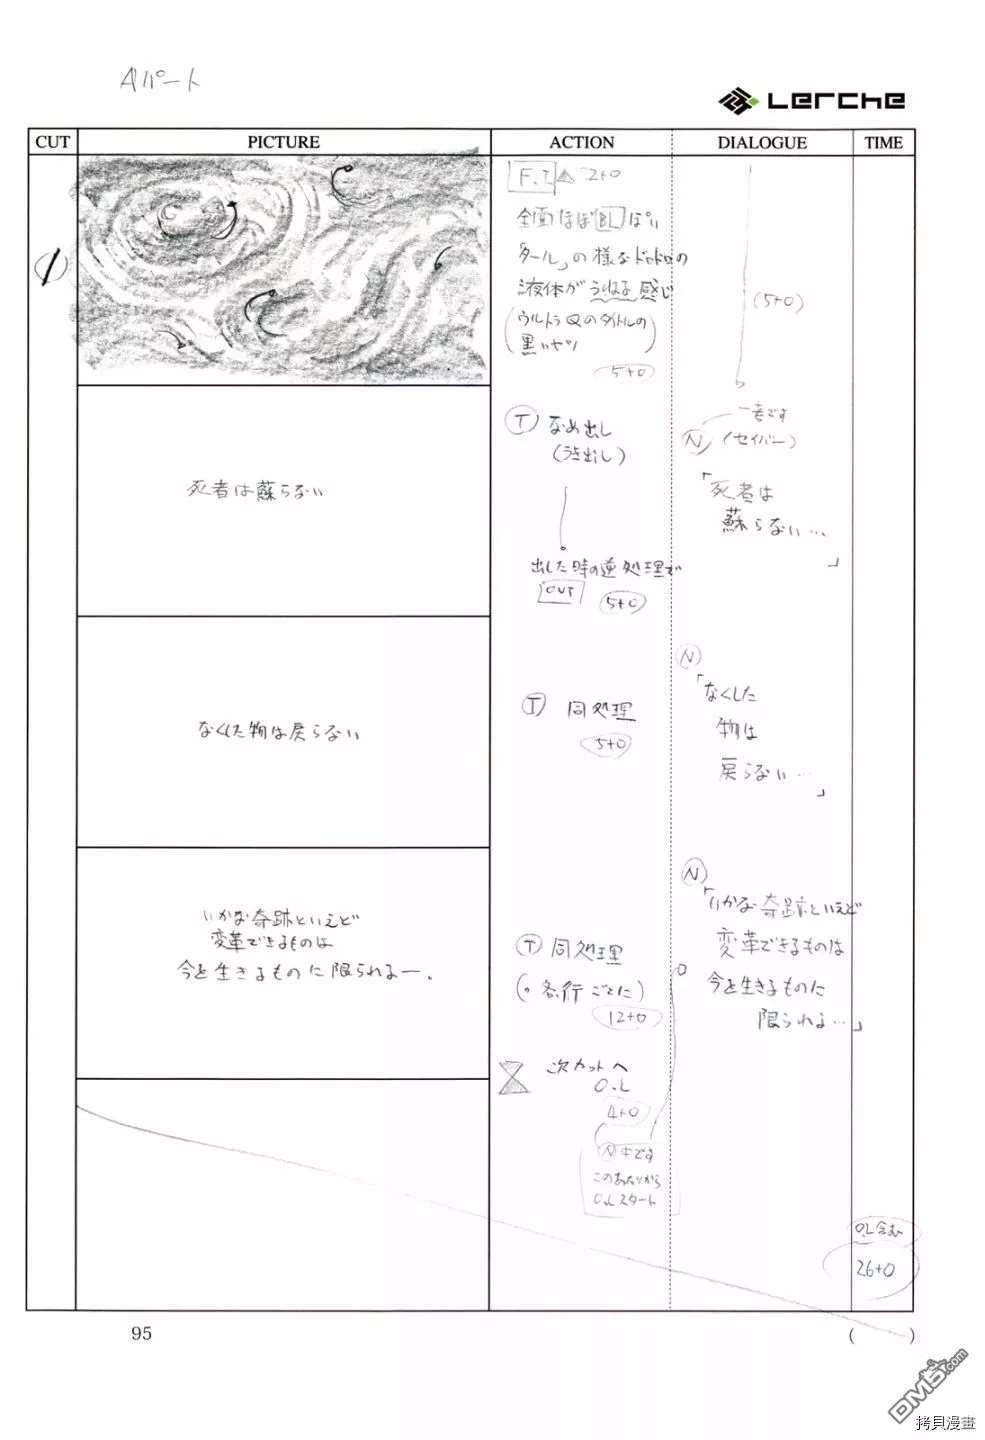 Aパート
Lerche
CUT
PICTURE
ACTION
DIALOGUE
TIME
1
F.I 2+0
全面ほぼBLぽい
「タール」の様なドロドロの
液体がうねる感じ
(ウルトラQのタイトルの
黒いヤツ)
5+0
(5+0)
死者は蘇らない
T なめ出し
(うき出し)
出した時の逆処理で
OUT 5+0
N (セイバー)
「死者は
蘇らない…
」
なくした物は戻らない
T 同処理
5+0
N
「なくした
物は
戻らない…
」
いかな奇跡といえど
変革できるものは
今を生きるものに限られるー.
T 同処理
(。各行ごとに)
12+0
N
「いかな奇跡といえど
変革できるものは
今を生きるものに
限られる…」
次カットへ
O.L
4+0
N 中です
このあたりから
O.Lスタート
O.L含む
26+0
95
( )
DM5.com
拷貝漫畫